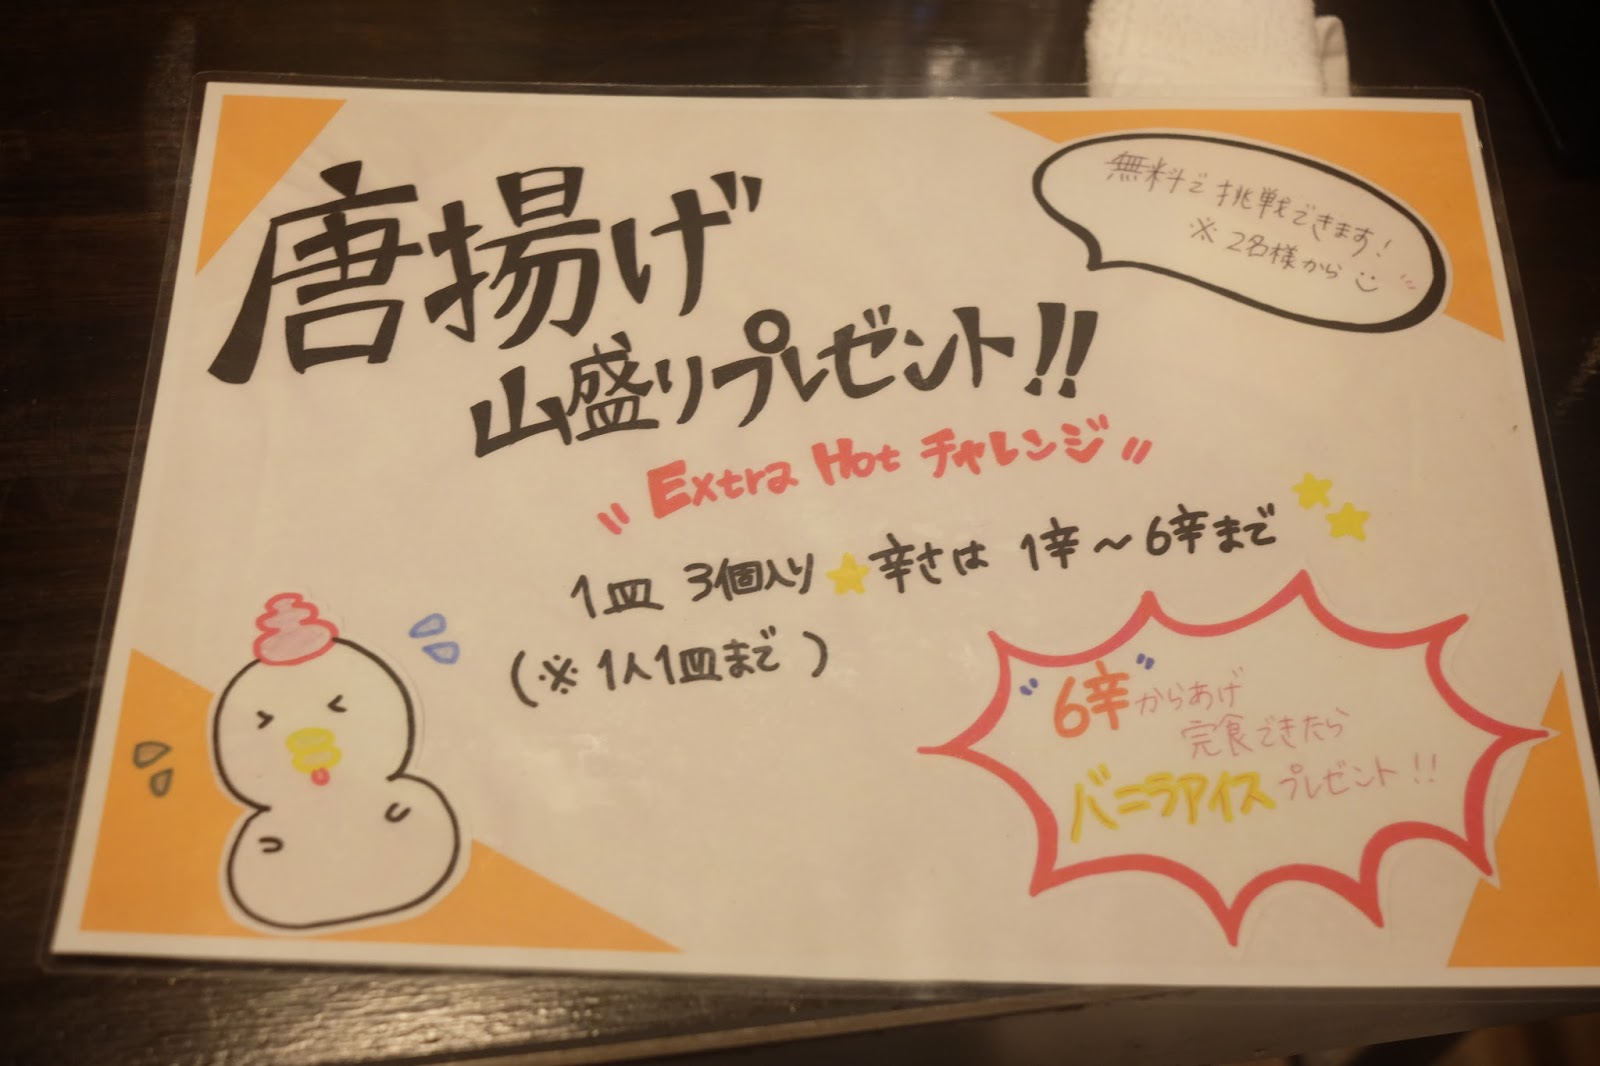 唐揚げ
山盛りプレゼント!!
無料で挑戦できます!
※2名様から
"Extra Hot チャレンジ"
1皿 3個入り 辛さは 1辛～6辛まで
(※ 1人1皿まで)
"6辛"からあげ
完食できたら
バニラアイスプレゼント!!